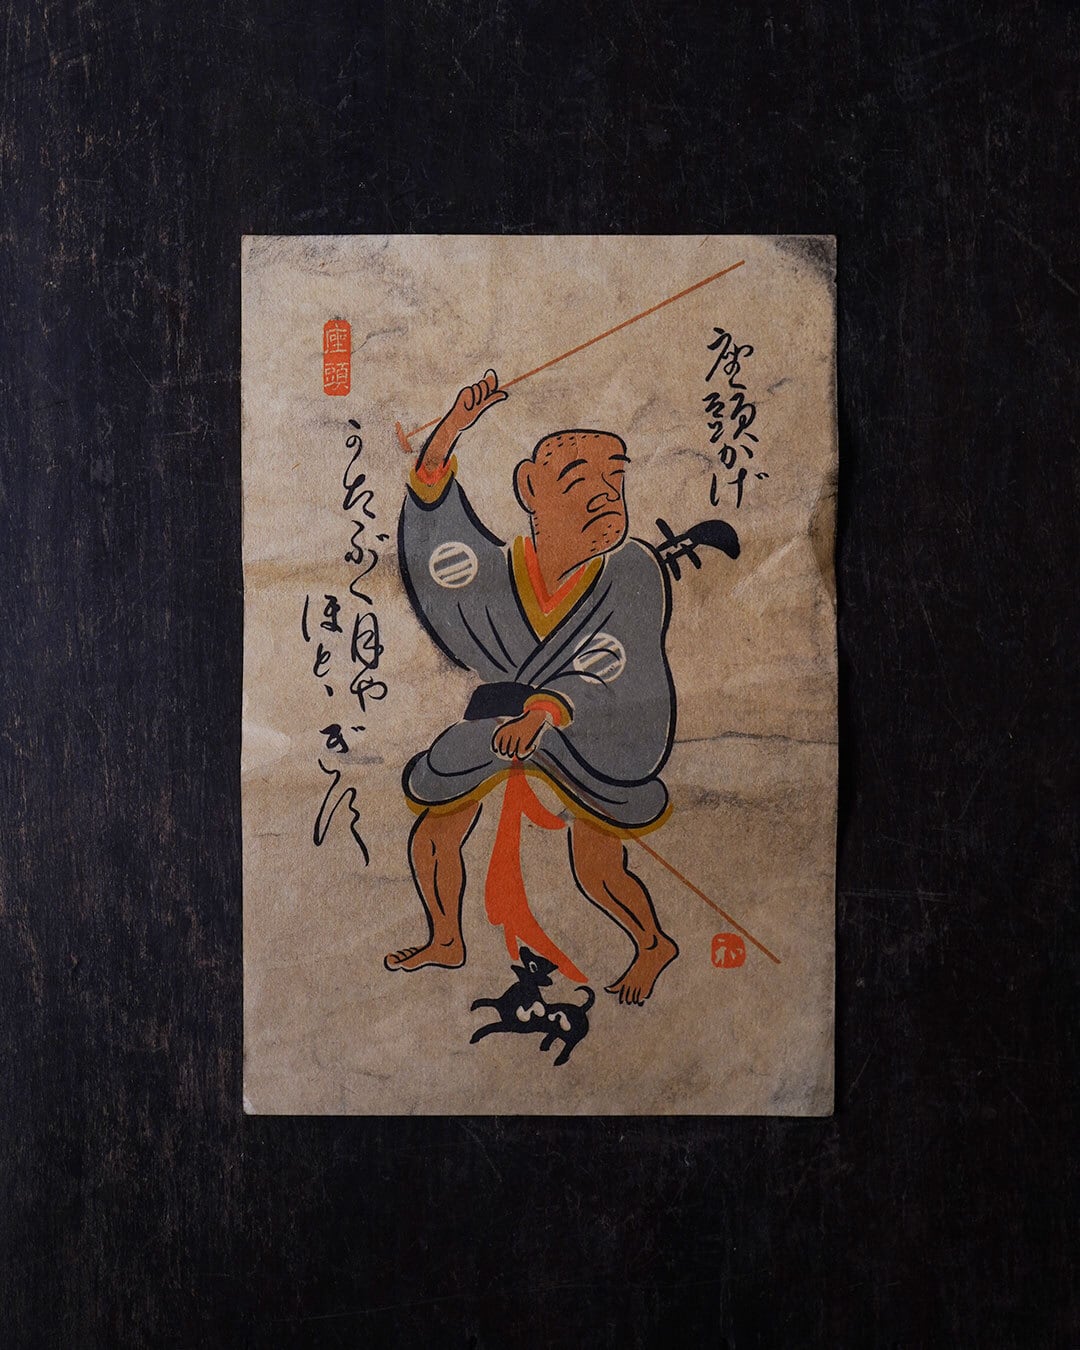 座頭かげ
かたぶく月や
ほとゝぎす
座頭
和